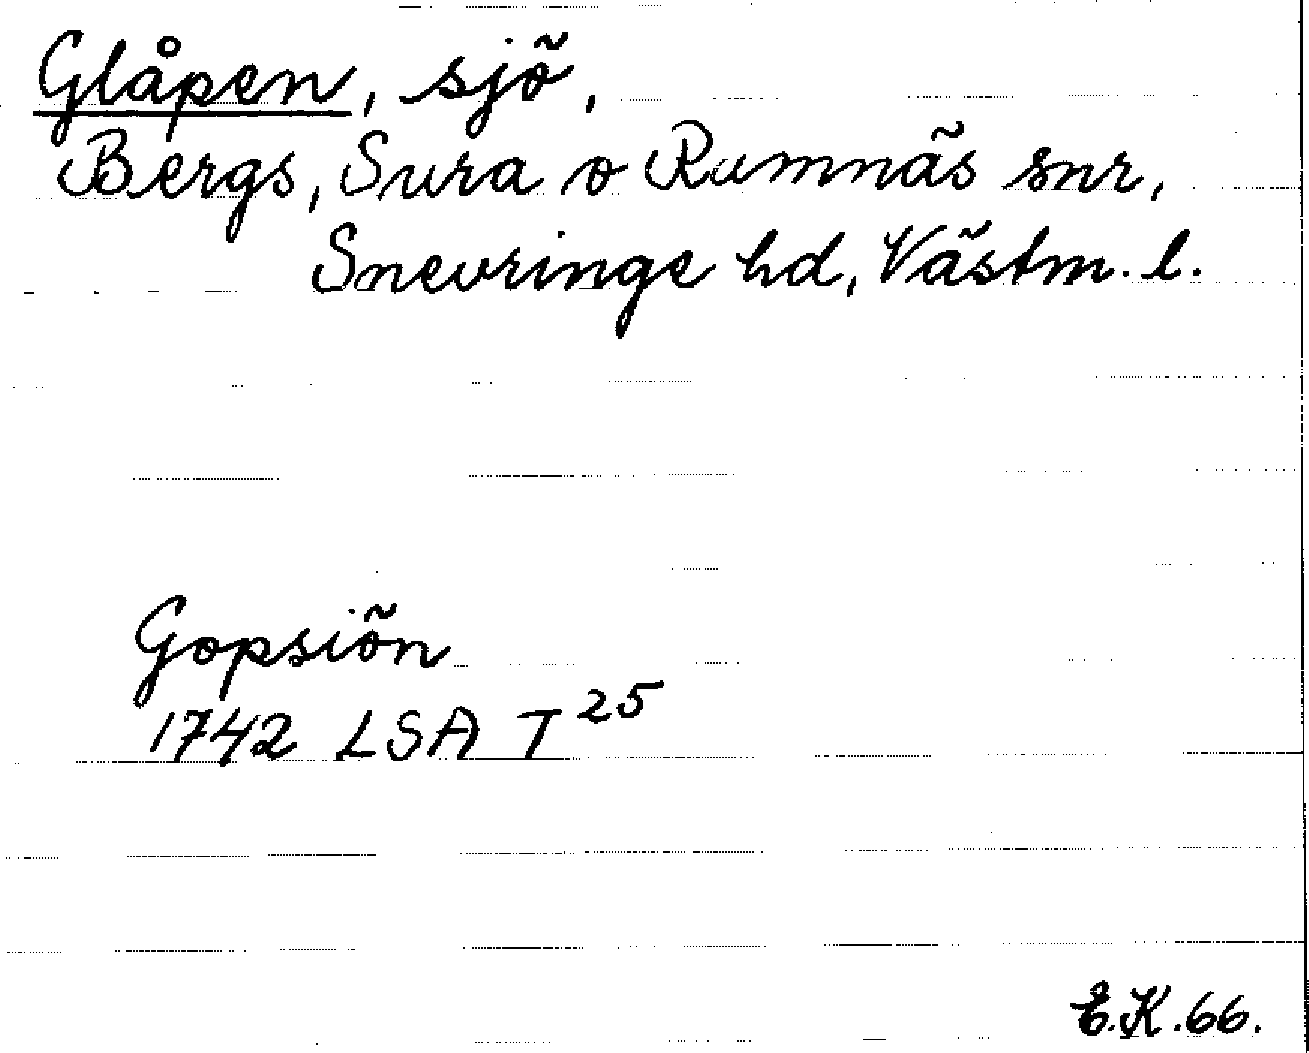 Glåpen, sjö,
Bergs, Sura o Ramnäs snr,
Snevringe hd, Västm. l.
Gopsiön
1742 LSA T 25
E.K. 66.